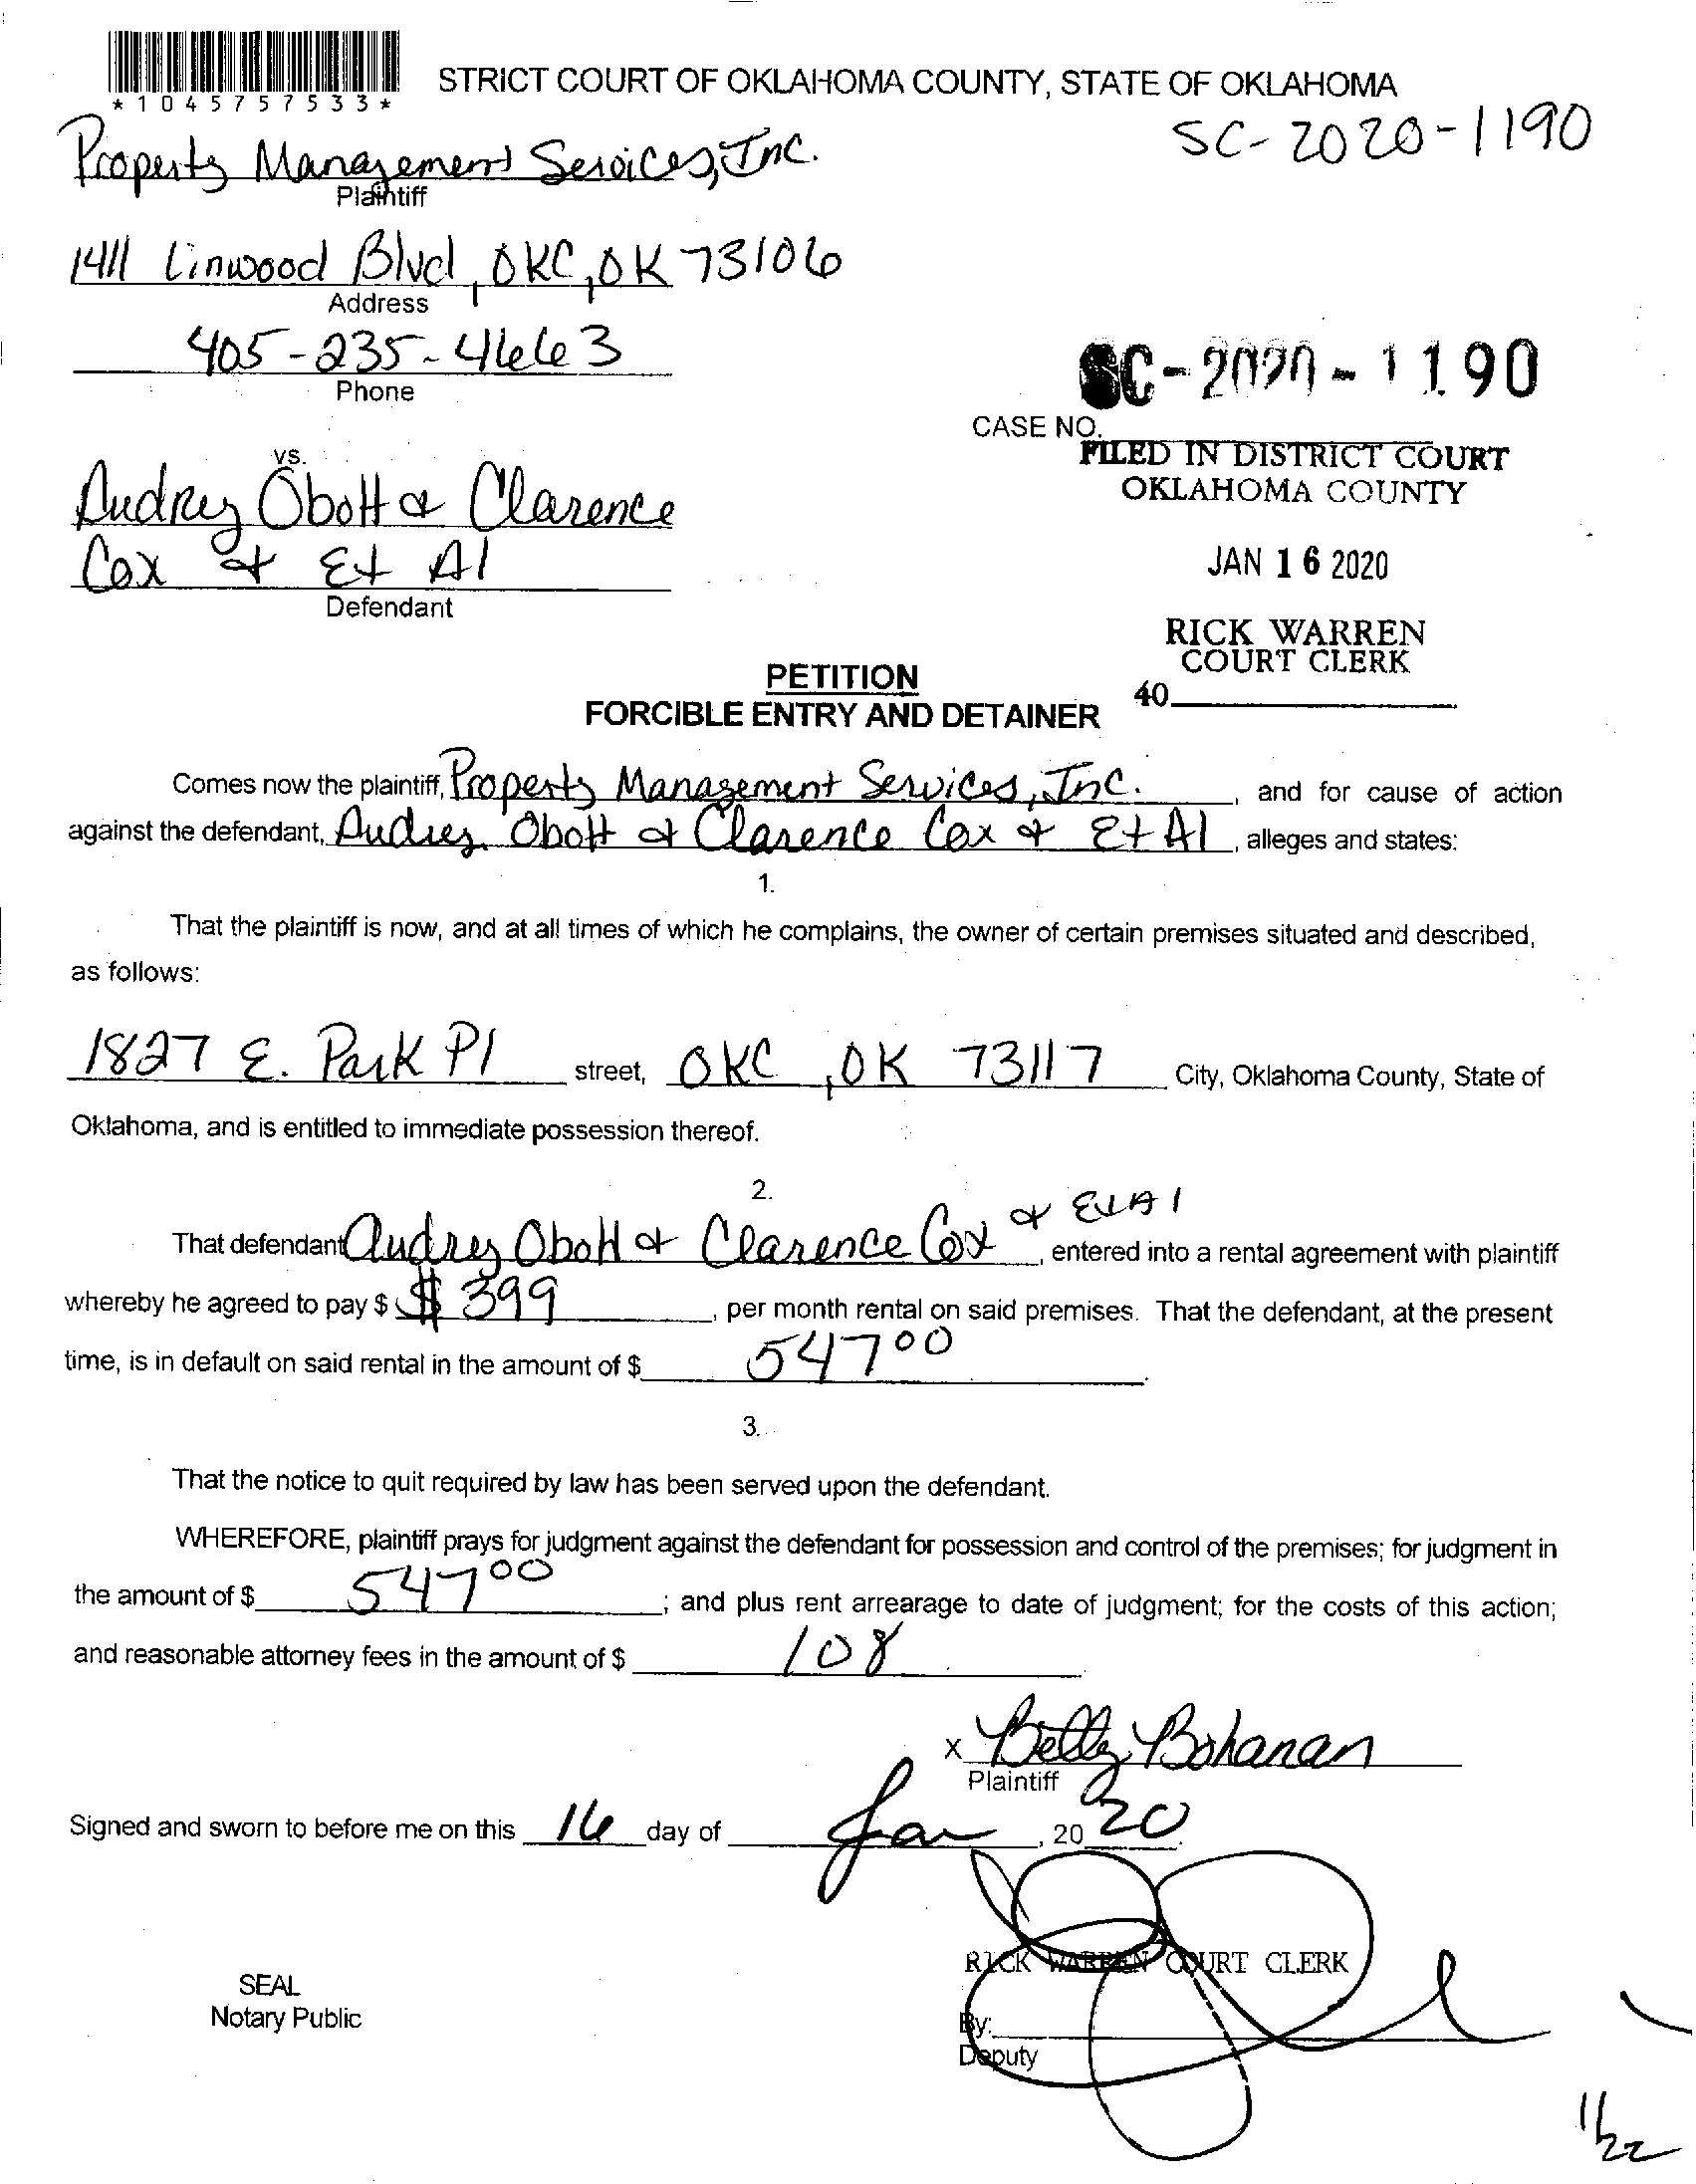 *1045757533*
STRICT COURT OF OKLAHOMA COUNTY, STATE OF OKLAHOMA
SC-2020-1190
Property Management Services, Inc.
Plaintiff
1411 Linwood Blvd, OKC, OK 73106
Address
405-235-4663
Phone
SC-2020-1190
CASE NO.
FILED IN DISTRICT COURT
OKLAHOMA COUNTY
vs.
Audrey Obott & Clarence
Cox & Et Al
Defendant
JAN 16 2020
RICK WARREN
COURT CLERK
40
PETITION
FORCIBLE ENTRY AND DETAINER
Comes now the plaintiff, Property Management Services, Inc., and for cause of action
against the defendant, Audrey Obott & Clarence Cox & Et Al, alleges and states:
1.
That the plaintiff is now, and at all times of which he complains, the owner of certain premises situated and described,
as follows:
1827 E. Park Pl street, OKC, OK 73117 City, Oklahoma County, State of
Oklahoma, and is entitled to immediate possession thereof.
2.
That defendant Audrey Obott & Clarence Cox & Et Al, entered into a rental agreement with plaintiff
whereby he agreed to pay $ $ 399, per month rental on said premises. That the defendant, at the present
time, is in default on said rental in the amount of $ 547 00.
3.
That the notice to quit required by law has been served upon the defendant.
WHEREFORE, plaintiff prays for judgment against the defendant for possession and control of the premises; for judgment in
the amount of $ 547 00; and plus rent arrearage to date of judgment; for the costs of this action;
and reasonable attorney fees in the amount of $ 108
x Betty Bohanan
Plaintiff
Signed and sworn to before me on this 16 day of Jan, 20 20.
RICK WARREN COURT CLERK
SEAL
Notary Public
By:
Deputy
1/22